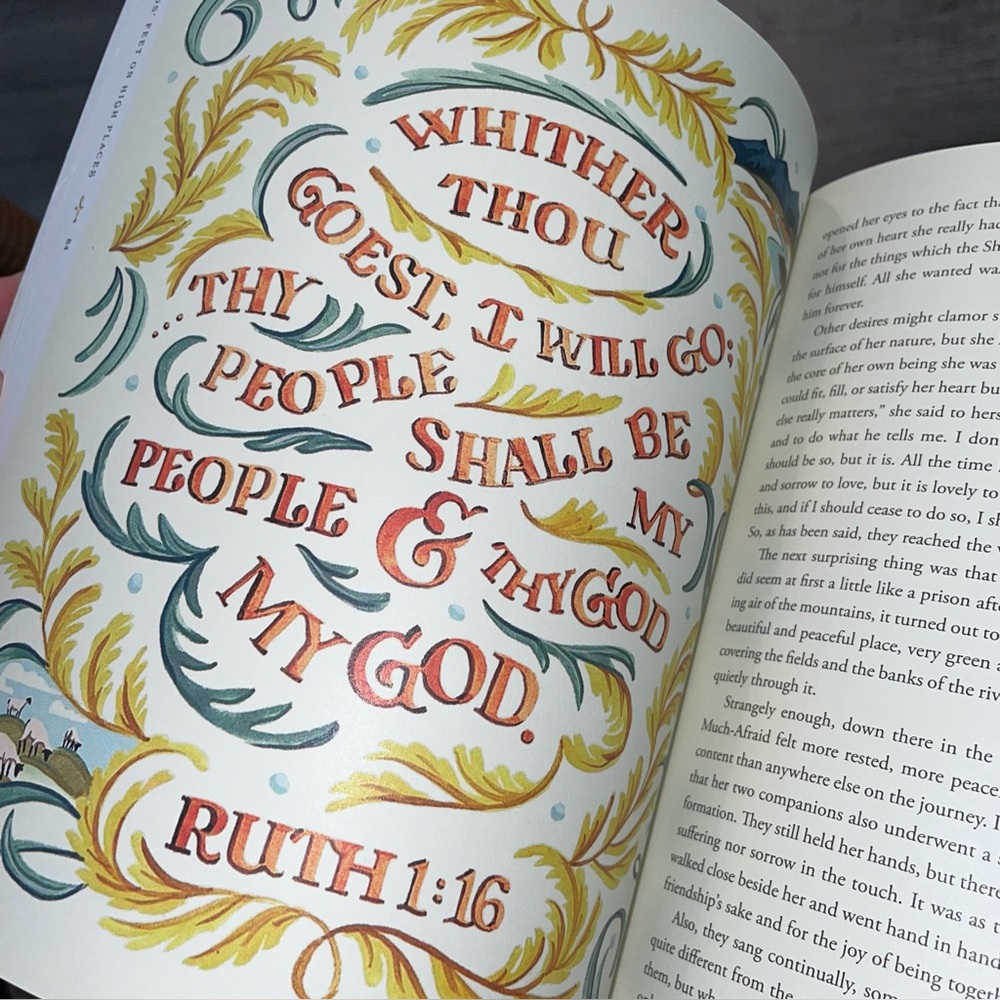 FEET ON HIGH PLACES
84
WHITHER
THOU
GOEST, I WILL GO;
...THY
PEOPLE
SHALL BE
MY
PEOPLE & THY GOD
MY GOD.
RUTH 1:16
opened her eyes to the fact
of her own heart she really
not for the things which the
for himself. All she wanted
him forever.
Other desires might clamor
the surface of her nature, but she
the core of her own being she was
could fit, fill, or satisfy her heart
else really matters,” she said to
and to do what he tells me. I
should be so, but it is. All the time
and sorrow to love, but it is lovely to
this, and if I should cease to do so, I
So, as has been said, they reached the
The next surprising thing was that
did seem at first a little like a prison
ing air of the mountains, it turned out to
beautiful and peaceful place, very green
covering the fields and the banks of the
quietly through it.
Strangely enough, down there in the
Much-Afraid felt more rested, more
content than anywhere else on the journey.
that her two companions also underwent a
formation. They still held her hands, but
suffering nor sorrow in the touch. It was as
walked close beside her and went hand in
friendship’s sake and for the joy of being
Also, they sang continually,
quite different from the
them, but